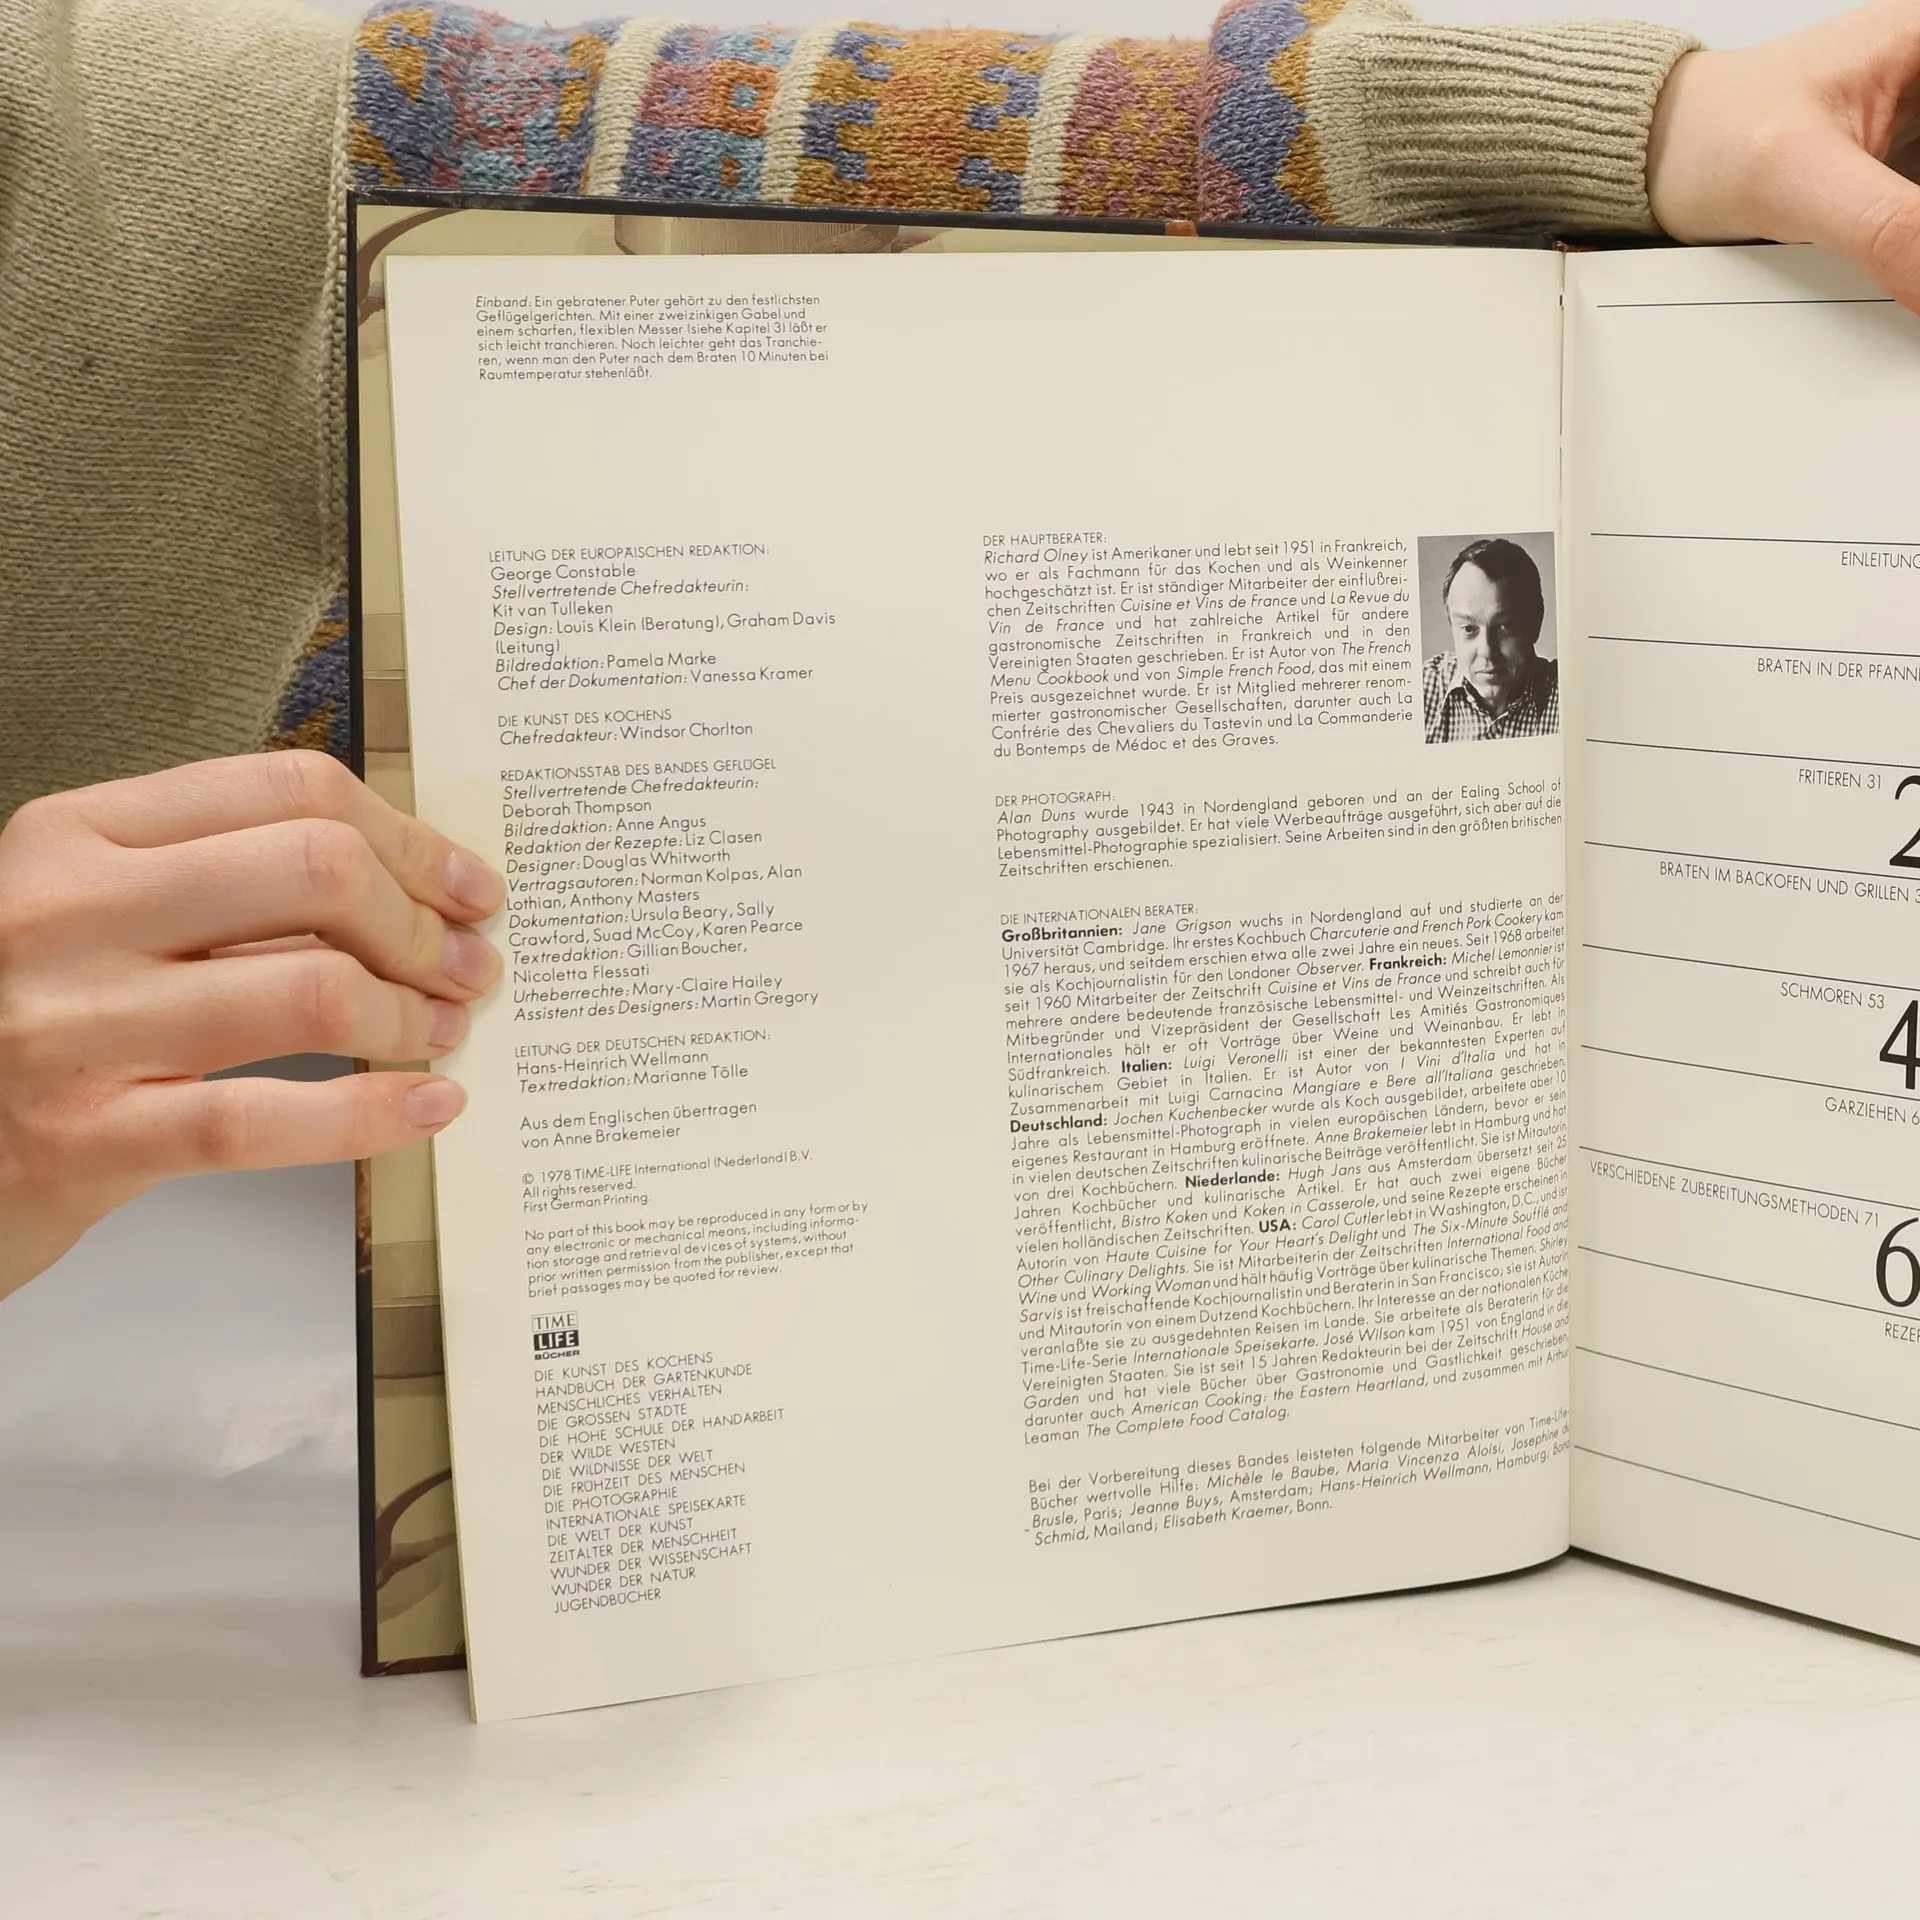 Einband: Ein gebratener Puter gehört zu den festlichsten
Geflügelgerichten. Mit einer zweizinkigen Gabel und
einem scharfen, flexiblen Messer (siehe Kapitel 3) läßt er
sich leicht tranchieren. Noch leichter geht das Tranchie-
ren, wenn man den Puter nach dem Braten 10 Minuten bei
Raumtemperatur stehenläßt.
LEITUNG DER EUROPÄISCHEN REDAKTION:
George Constable
Stellvertretende Chefredakteurin:
Kit van Tulleken
Design: Louis Klein (Beratung), Graham Davis
(Leitung)
Bildredaktion: Pamela Marke
Chef der Dokumentation: Vanessa Kramer
DIE KUNST DES KOCHENS
Chefredakteur: Windsor Chorlton
REDAKTIONSSTAB DES BANDES GEFLÜGEL
Stellvertretende Chefredakteurin:
Deborah Thompson
Bildredaktion: Anne Angus
Redaktion der Rezepte: Liz Clasen
Designer: Douglas Whitworth
Vertragsautoren: Norman Kolpas, Alan
Lothian, Anthony Masters
Dokumentation: Ursula Beary, Sally
Crawford, Suad McCoy, Karen Pearce
Textredaktion: Gillian Boucher,
Nicoletta Flessati
Urheberrechte: Mary-Claire Hailey
Assistent des Designers: Martin Gregory
LEITUNG DER DEUTSCHEN REDAKTION:
Hans-Heinrich Wellmann
Textredaktion: Marianne Tölle
Aus dem Englischen übertragen
von Anne Brakemeier
© 1978 TIME-LIFE International (Nederland) B.V.
All rights reserved.
First German Printing.
No part of this book may be reproduced in any form or by
any electronic or mechanical means, including informa-
tion storage and retrieval devices of systems, without
prior written permission from the publisher, except that
brief passages may be quoted for review.
TIME
LIFE
BÜCHER
DIE KUNST DES KOCHENS
HANDBUCH DER GARTENKUNDE
MENSCHLICHES VERHALTEN
DIE GROSSEN STÄDTE
DIE HOHE SCHULE DER HANDARBEIT
DER WILDE WESTEN
DIE WILDNISSE DER WELT
DIE FRÜHZEIT DES MENSCHEN
DIE PHOTOGRAPHIE
INTERNATIONALE SPEISEKARTE
DIE WELT DER KUNST
ZEITALTER DER MENSCHHEIT
WUNDER DER WISSENSCHAFT
WUNDER DER NATUR
JUGENDBÜCHER
DER HAUPTBERATER:
Richard Olney ist Amerikaner und lebt seit 1951 in Frankreich,
wo er als Fachmann für das Kochen und als Weinkenner
hochgeschätzt ist. Er ist ständiger Mitarbeiter der einflußrei-
chen Zeitschriften Cuisine et Vins de France und La Revue du
Vin de France und hat zahlreiche Artikel für andere
gastronomische Zeitschriften in Frankreich und in den
Vereinigten Staaten geschrieben. Er ist Autor von The French
Menu Cookbook und von Simple French Food, das mit einem
Preis ausgezeichnet wurde. Er ist Mitglied mehrerer renom-
mierter gastronomischer Gesellschaften, darunter auch La
Confrérie des Chevaliers du Tastevin und La Commanderie
du Bontemps de Médoc et des Graves.
DER PHOTOGRAPH:
Alan Duns wurde 1943 in Nordengland geboren und an der Ealing School of
Photography ausgebildet. Er hat viele Werbeaufträge ausgeführt, sich aber auf die
Lebensmittel-Photographie spezialisiert. Seine Arbeiten sind in den größten britischen
Zeitschriften erschienen.
DIE INTERNATIONALEN BERATER:
Großbritannien: Jane Grigson wuchs in Nordengland auf und studierte an der
Universität Cambridge. Ihr erstes Kochbuch Charcuterie and French Pork Cookery kam
1967 heraus, und seitdem erschien etwa alle zwei Jahre ein neues. Seit 1968 arbeitet
sie als Kochjournalistin für den Londoner Observer. Frankreich: Michel Lemonnier ist
seit 1960 Mitarbeiter der Zeitschrift Cuisine et Vins de France und schreibt auch für
mehrere andere bedeutende französische Lebensmittel- und Weinzeitschriften. Als
Mitbegründer und Vizepräsident der Gesellschaft Les Amitiés Gastronomiques
Internationales hält er oft Vorträge über Weine und Weinanbau. Er lebt in
Südfrankreich. Italien: Luigi Veronelli ist einer der bekanntesten Experten auf
kulinarischem Gebiet in Italien. Er ist Autor von I Vini d'Italia und hat in
Zusammenarbeit mit Luigi Carnacina Mangiare e Bere all'Italiana geschrieben.
Deutschland: Jochen Kuchenbecker wurde als Koch ausgebildet, arbeitete aber 10
Jahre als Lebensmittel-Photograph in vielen europäischen Ländern, bevor er sein
eigenes Restaurant in Hamburg eröffnete. Anne Brakemeier lebt in Hamburg und hat
in vielen deutschen Zeitschriften kulinarische Beiträge veröffentlicht. Sie ist Mitautorin
von drei Kochbüchern. Niederlande: Hugh Jans aus Amsterdam übersetzt seit 25
Jahren Kochbücher und kulinarische Artikel. Er hat auch zwei eigene Bücher
veröffentlicht, Bistro Koken und Koken in Casserole, und seine Rezepte erscheinen in
vielen holländischen Zeitschriften. USA: Carol Cutler lebt in Washington, D.C., und ist
Autorin von Haute Cuisine for Your Heart's Delight und The Six-Minute Soufflé and
Other Culinary Delights. Sie ist Mitarbeiterin der Zeitschriften International Food and
Wine und Working Woman und hält häufig Vorträge über kulinarische Themen. Shirley
Sarvis ist freischaffende Kochjournalistin und Beraterin in San Francisco; sie ist Autorin
und Mitautorin von einem Dutzend Kochbüchern. Ihr Interesse an der nationalen Küche
veranlaßte sie zu ausgedehnten Reisen im Lande. Sie arbeitete als Beraterin für die
Time-Life-Serie Internationale Speisekarte. José Wilson kam 1951 von England in die
Vereinigten Staaten. Sie ist seit 15 Jahren Redakteurin bei der Zeitschrift House and
Garden und hat viele Bücher über Gastronomie und Gastlichkeit geschrieben,
darunter auch American Cooking: the Eastern Heartland, und zusammen mit Arthur
Leaman The Complete Food Catalog.
Bei der Vorbereitung dieses Bandes leisteten folgende Mitarbeiter von Time-Life-
Bücher wertvolle Hilfe: Michèle le Baube, Maria Vincenza Aloisi, Josephine du
Brusle, Paris; Jeanne Buys, Amsterdam; Hans-Heinrich Wellmann, Hamburg;
Schmid, Mailand; Elisabeth Kraemer, Bonn.
EINLEITUNG
BRATEN IN DER PFANNE
FRITIEREN 31
2
BRATEN IM BACKOFEN UND GRILLEN 3
SCHMOREN 53
4
GARZIEHEN 6
VERSCHIEDENE ZUBEREITUNGSMETHODEN 71
6
REZEP